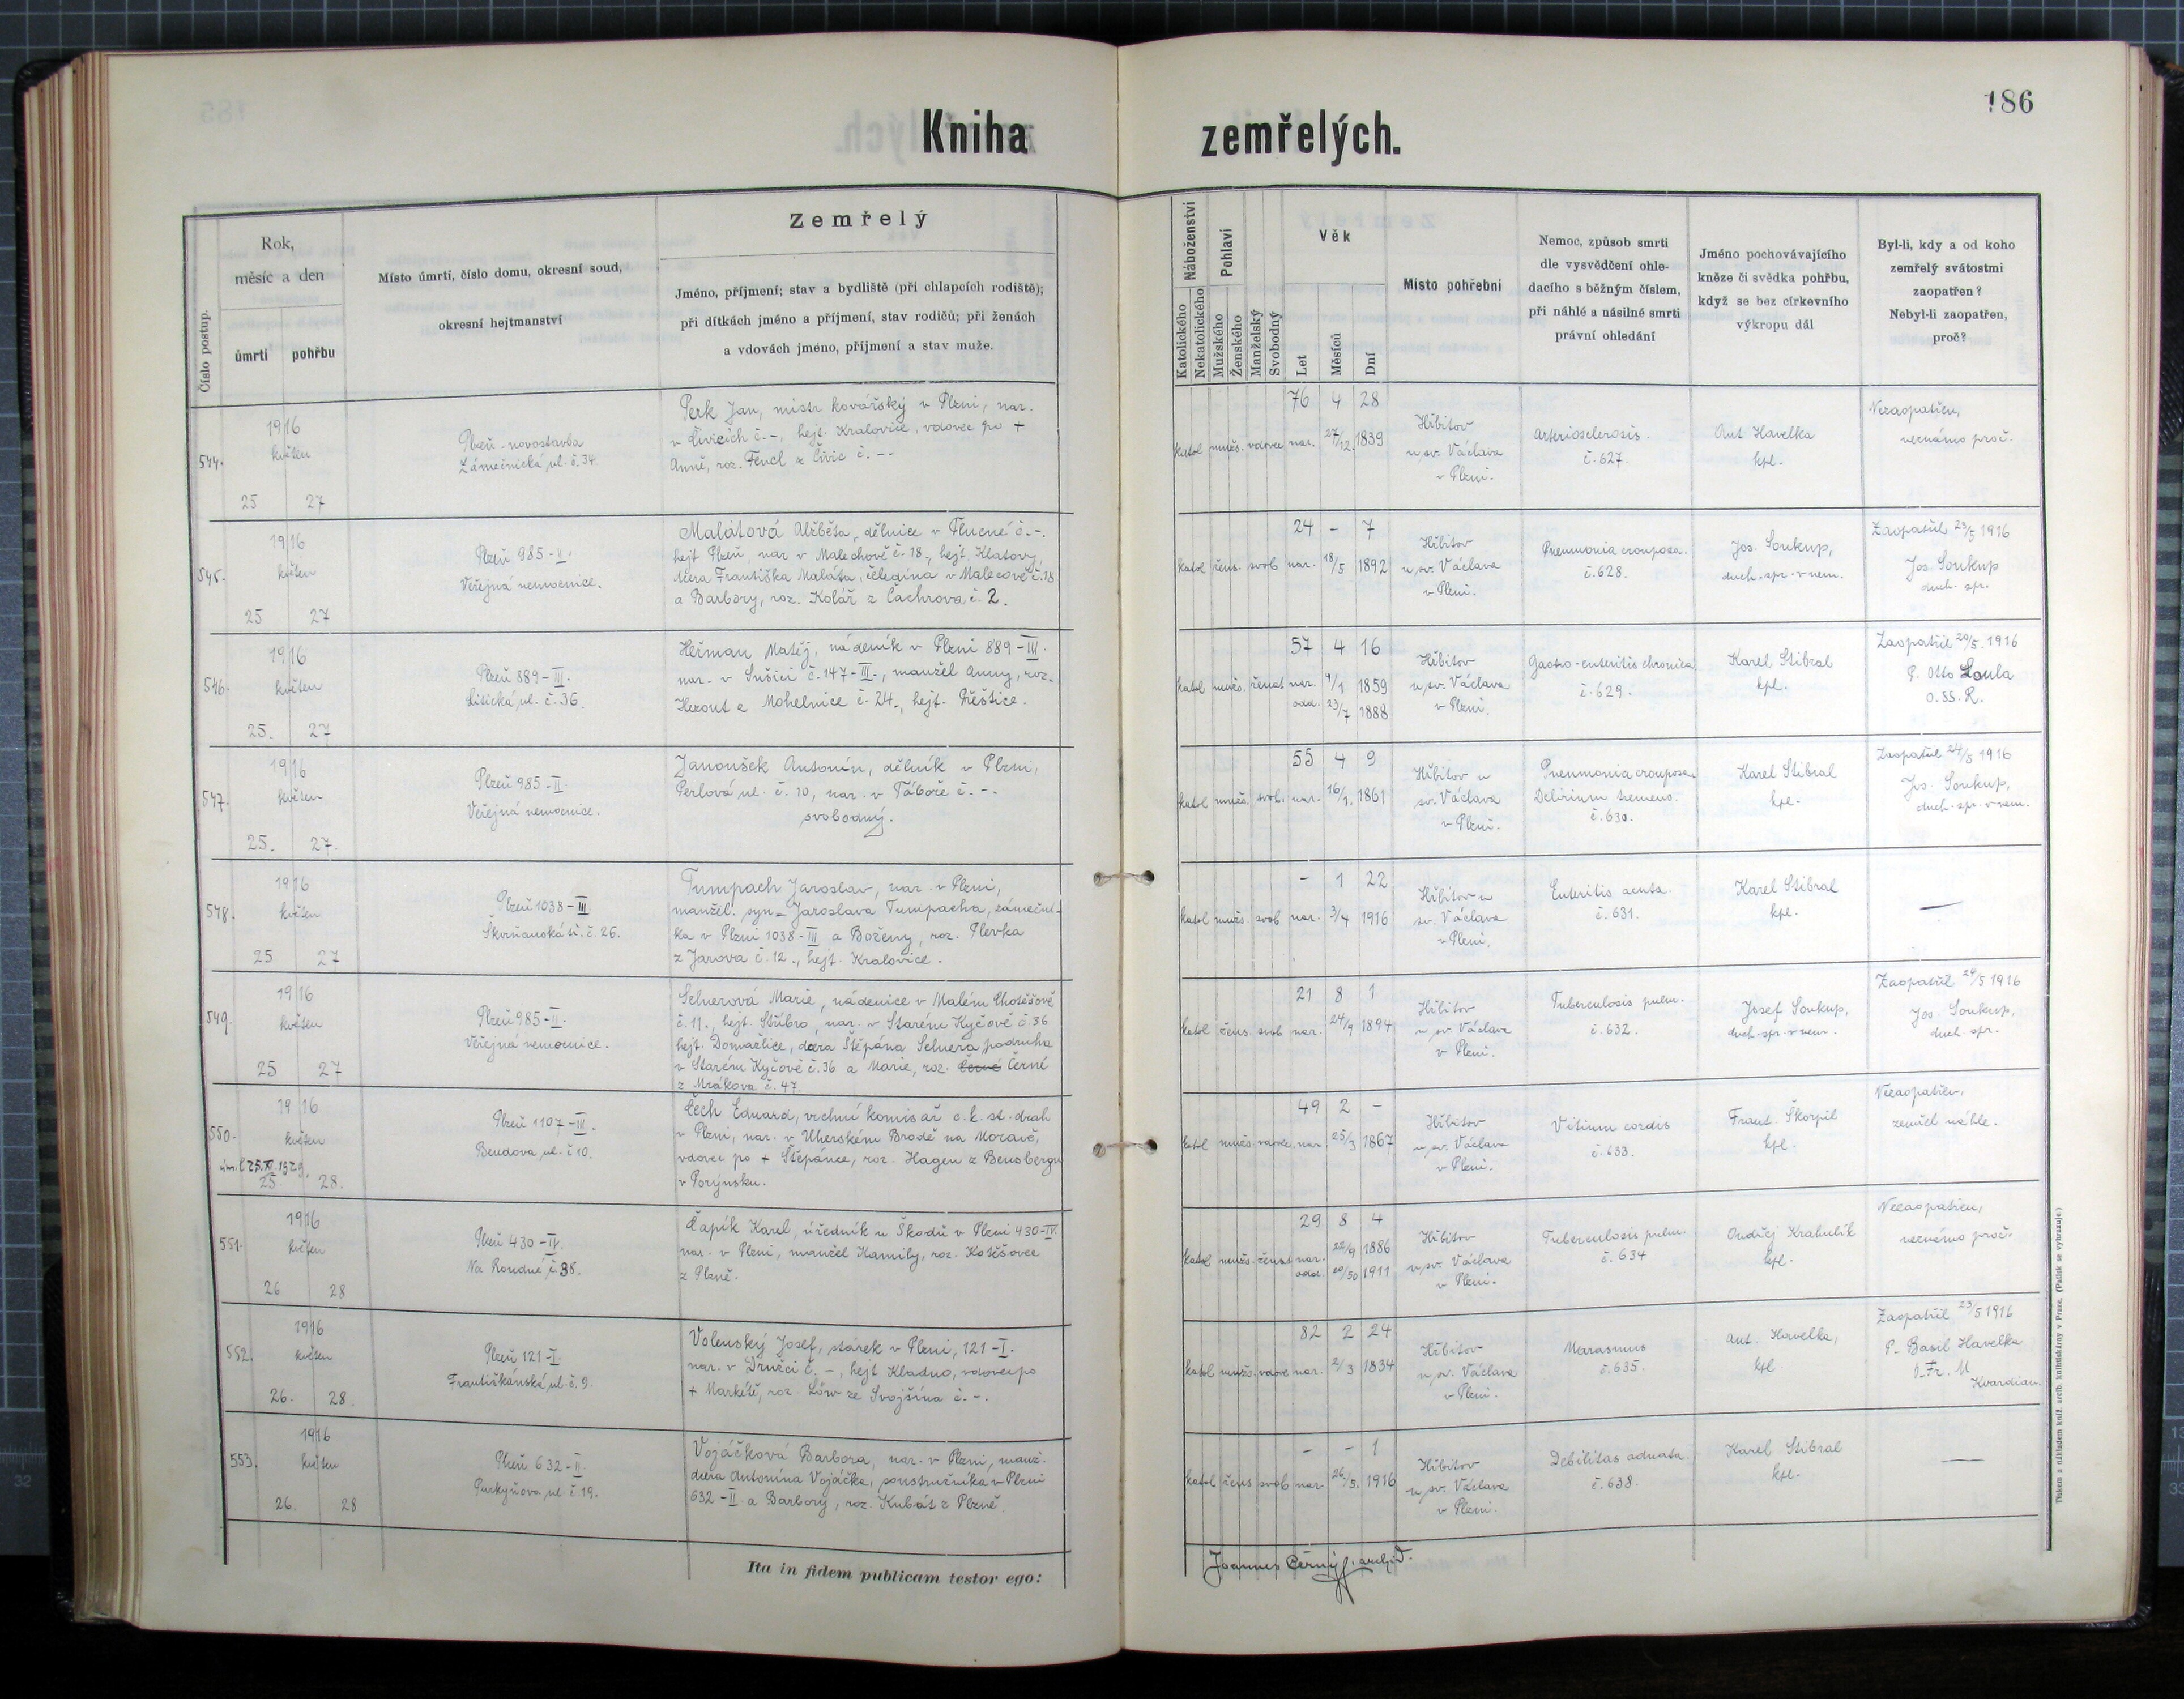 186
Kniha zemřelých.
Číslo postup.
Rok,
měsíc a den
úmrtí
pohřbu
Místo úmrtí, číslo domu, okresní soud,
okresní hejtmanství
Zemřelý
Jméno, příjmení; stav a bydliště (při chlapcích rodiště);
při dítkách jméno a příjmení, stav rodičů; při ženách
a vdovách jméno, příjmení a stav muže.
Náboženství
Katolického
Nekatolického
Pohlaví
Mužského
Ženského
Manželský
Svobodný
Věk
Let
Měsíců
Dní
Místo pohřební
Nemoc, způsob smrti
dle vysvědčení ohle-
dacího s běžným číslem,
při náhlé a násilné smrti
právní ohledání
Jméno pochovávajícího
kněze či svědka pohřbu,
když se bez církevního
výkropu dál
Byl-li, kdy a od koho
zemřelý svátostmi
zaopatřen?
Nebyl-li zaopatřen,
proč?
544.
1916
květen
25 27
Plzeň-novostavba
Zámečnická ul. č. 34
Perk Jan, mistr kovářský v Plzni, nar.
v Čivicích č. -, hejt. Kralovice, vdovec po +
Anně, roz. Fencl z Čivic č. --
76 4 28
katol mužs. vdovec nar. 27/12. 1839
Hřbitov
u sv. Václava
v Plzni.
Arteriosclerosis.
č. 627.
Ant. Havelka
kpl.
Nezaopatřen,
neznámo proč.
545.
1916
květen
25 27
Plzeň 985-II.
Veřejná nemocnice.
Malátová Alžběta, dělnice v Tlucné č. -.
hejt Plzeň, nar v Malechově č. 18., hejt. Klatovy,
dcera Františka Maláta, čeledína v Malecově č. 18
a Barbory, roz. Kolář z Čachrova č. 2.
24 - 7
katol žens. svob nar. 18/5 1892
Hřbitov
u sv. Václava
v Plzni.
Pneumonia crouposa.
č. 628.
Jos. Soukup,
duch. spr. v nem.
Zaopatřil 23/5 1916
Jos. Soukup
duch. spr.
546.
1916
květen
25. 27
Plzeň 889-III.
Litická ul. č. 36.
Heřman Matěj, nádeník v Plzni 889-III.
nar. v Sušici č. 147-III., manžel Anny, roz.
Herout z Mohelnice č. 24., hejt. Přeštice.
57 4 16
katol mužs. ženat nar. 9/1 1859
odd. 23/7 1888
Hřbitov
u sv. Václava
v Plzni.
Gastro-enteritis chronica
č. 629.
Karel Stibral
kpl.
Zaopatřil 20/5. 1916
P. Otto Loula
O.SS.R.
547.
1916
květen
25. 27.
Plzeň 985-II.
Veřejná nemocnice.
Janoušek Antonín, dělník v Plzni,
Perlová ul. č. 10, nar. v Táboře č. -.
svobodný.
55 4 9
katol mužs. svob. nar. 16/1. 1861
Hřbitov u
sv. Václava
v Plzni.
Pneumonia crouposa
Delirium tremens.
č. 630.
Karel Stibral
kpl.
Zaopatřil 24/5 1916
Jos. Soukup,
duch. spr. v nem.
548.
1916
květen
25 27
Plzeň 1038-III
Škvrňanská tř. č. 26.
Tumpach Jaroslav, nar. v Plzni,
manžel. syn Jaroslava Tumpacha, zámeční-
ka v Plzni 1038-III a Boženy, roz. Plevka
z Jarova č. 12., hejt. Kralovice.
- 1 22
katol mužs. svob nar. 3/4 1916
Hřbitov u
sv. Václava
v Plzni.
Enteritis acuta.
č. 631.
Karel Stibral
kpl.
—
549.
1916
květen
25 27
Plzeň 985-II.
Veřejná nemocnice.
Selnerová Marie, nádenice v Malém Chotěšově
č. 11., hejt. Stříbro, nar. v Starém Kyčově č. 36
hejt. Domažlice, dcera Štěpána Selnera, podruha
v Starém Kyčově č. 36 a Marie, roz. Černé Černé
z Mrákova č. 47.
21 8 1
katol žens. svob nar. 24/9 1894
Hřbitov
u sv. Václava
v Plzni.
Tuberculosis pulm.
č. 632.
Josef Soukup,
duch. spr. v nem.
Zaopatřil 24/5 1916
Jos. Soukup,
duch. spr.
550.
1916
květen
25. 28.
Plzeň 1107-III.
Bendova ul. č 10.
Čech Eduard, vrchní komisař c. k. st. drah
v Plzni, nar. v Uherském Brodě na Moravě,
vdovec po + Štěpánce, roz. Hagen z Bensbergu
v Porýnsku.
49 2 -
katol mužs. vdovec nar 25/3 1867
Hřbitov
u sv. Václava
v Plzni.
Vitium cordis
č. 633.
Frant. Škorpil
kpl.
Nezaopatřen,
zemřel náhle.
551.
1916
květen
26 28
Plzeň 430-IV.
Na Roudné č 38.
Čapík Karel, úředník u Škodů v Plzni 430-IV.
nar. v Plzni, manžel Kamily, roz. Kotěšovec
z Plzně.
29 8 4
katol mužs. ženat nar. 22/9 1886
odd 1911
Hřbitov
u sv. Václava
v Plzni.
Tuberculosis pulm.
č. 634
Ondřej Krahulík
kpl.
Nezaopatřen,
neznámo proč.
552.
1916
květen
26. 28.
Plzeň 121-I.
Františkánská ul. č. 9.
Volenský Josef, stárek v Plzni, 121-I.
nar. v Drnčci č. -, hejt Kladno, vdovec po
+ Markétě, roz. Löw ze Svojšína č. -.
82 2 24
katol mužs. vdovec nar. 2/3 1834
Hřbitov
u sv. Václava
v Plzni.
Marasmus
č. 635.
Ant. Havelka,
kpl.
Zaopatřil 23/5 1916
P. Basil Havelka
O.Fr.M
Kvardian.
553.
1916
květen
26. 28
Plzeň 632-II.
Purkyňova ul. č. 19.
Vojáčková Barbora, nar. v Plzni, manž.
dcera Antonína Vojáčka, soustružníka v Plzni
632-II. a Barbory, roz. Kubát z Plzně.
- - 1
katol žens svob nar. 26/5. 1916
Hřbitov
u sv. Václava
v Plzni.
Debilitas adnata.
č. 638.
Karel Stibral
kpl.
—
Ita in fidem publicam testor ego:
Joannes Černý
Tiskem a nákladem kníž. arcib. knihtiskárny v Praze. (Patisk se vyhrazuje.)